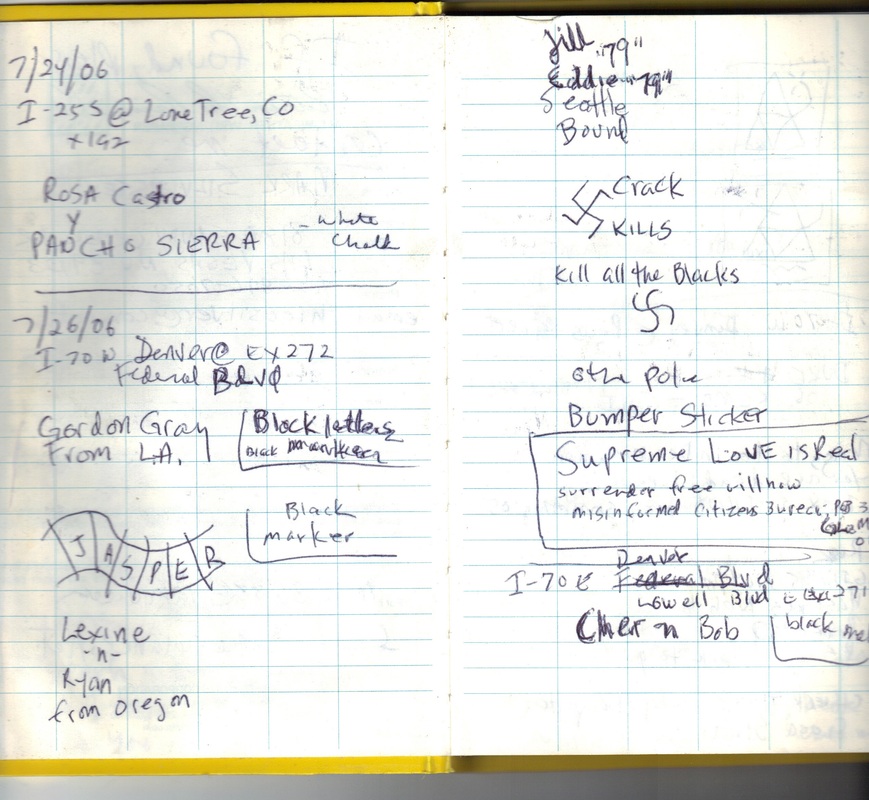 7/24/06
I-25 S @ LoneTree, CO
x192
ROSA Castro
Y
PANCHO SIERRA
- White
Chalk
7/26/06
I-70 W Denver @ EX 272
Federal Blvd
Gordon Gray
From L.A.
Black letters
Black
Black
marker
JASPER
Lexine
-n-
Ryan
from Oregon
Jill "79"
Eddie "79"
Seattle
Bound
Crack
KILLS
Kill all the Blacks
Bumper Sticker
Supreme LOVE is Real
surrender free will now
misinformed Citizens Bureau,
Denver
I-70 E Federal Blvd
Lowell Blvd 271
Cher n Bob
black